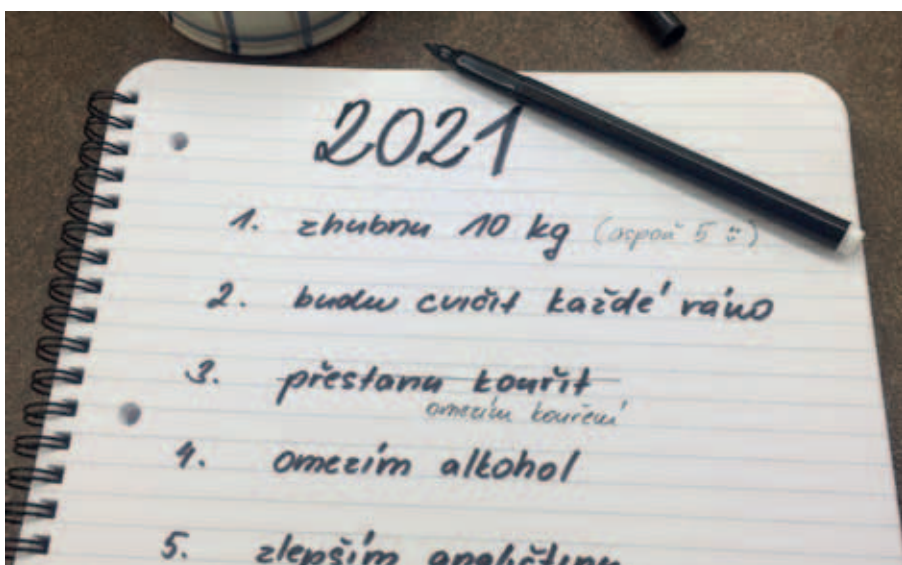 2021
1. zhubnu 10 kg (aspoň 5 :-)
2. budu cvičit každé ráno
3. přestanu kouřit
omezím kouření
4. omezím alkohol
5. zlepším angličtinu